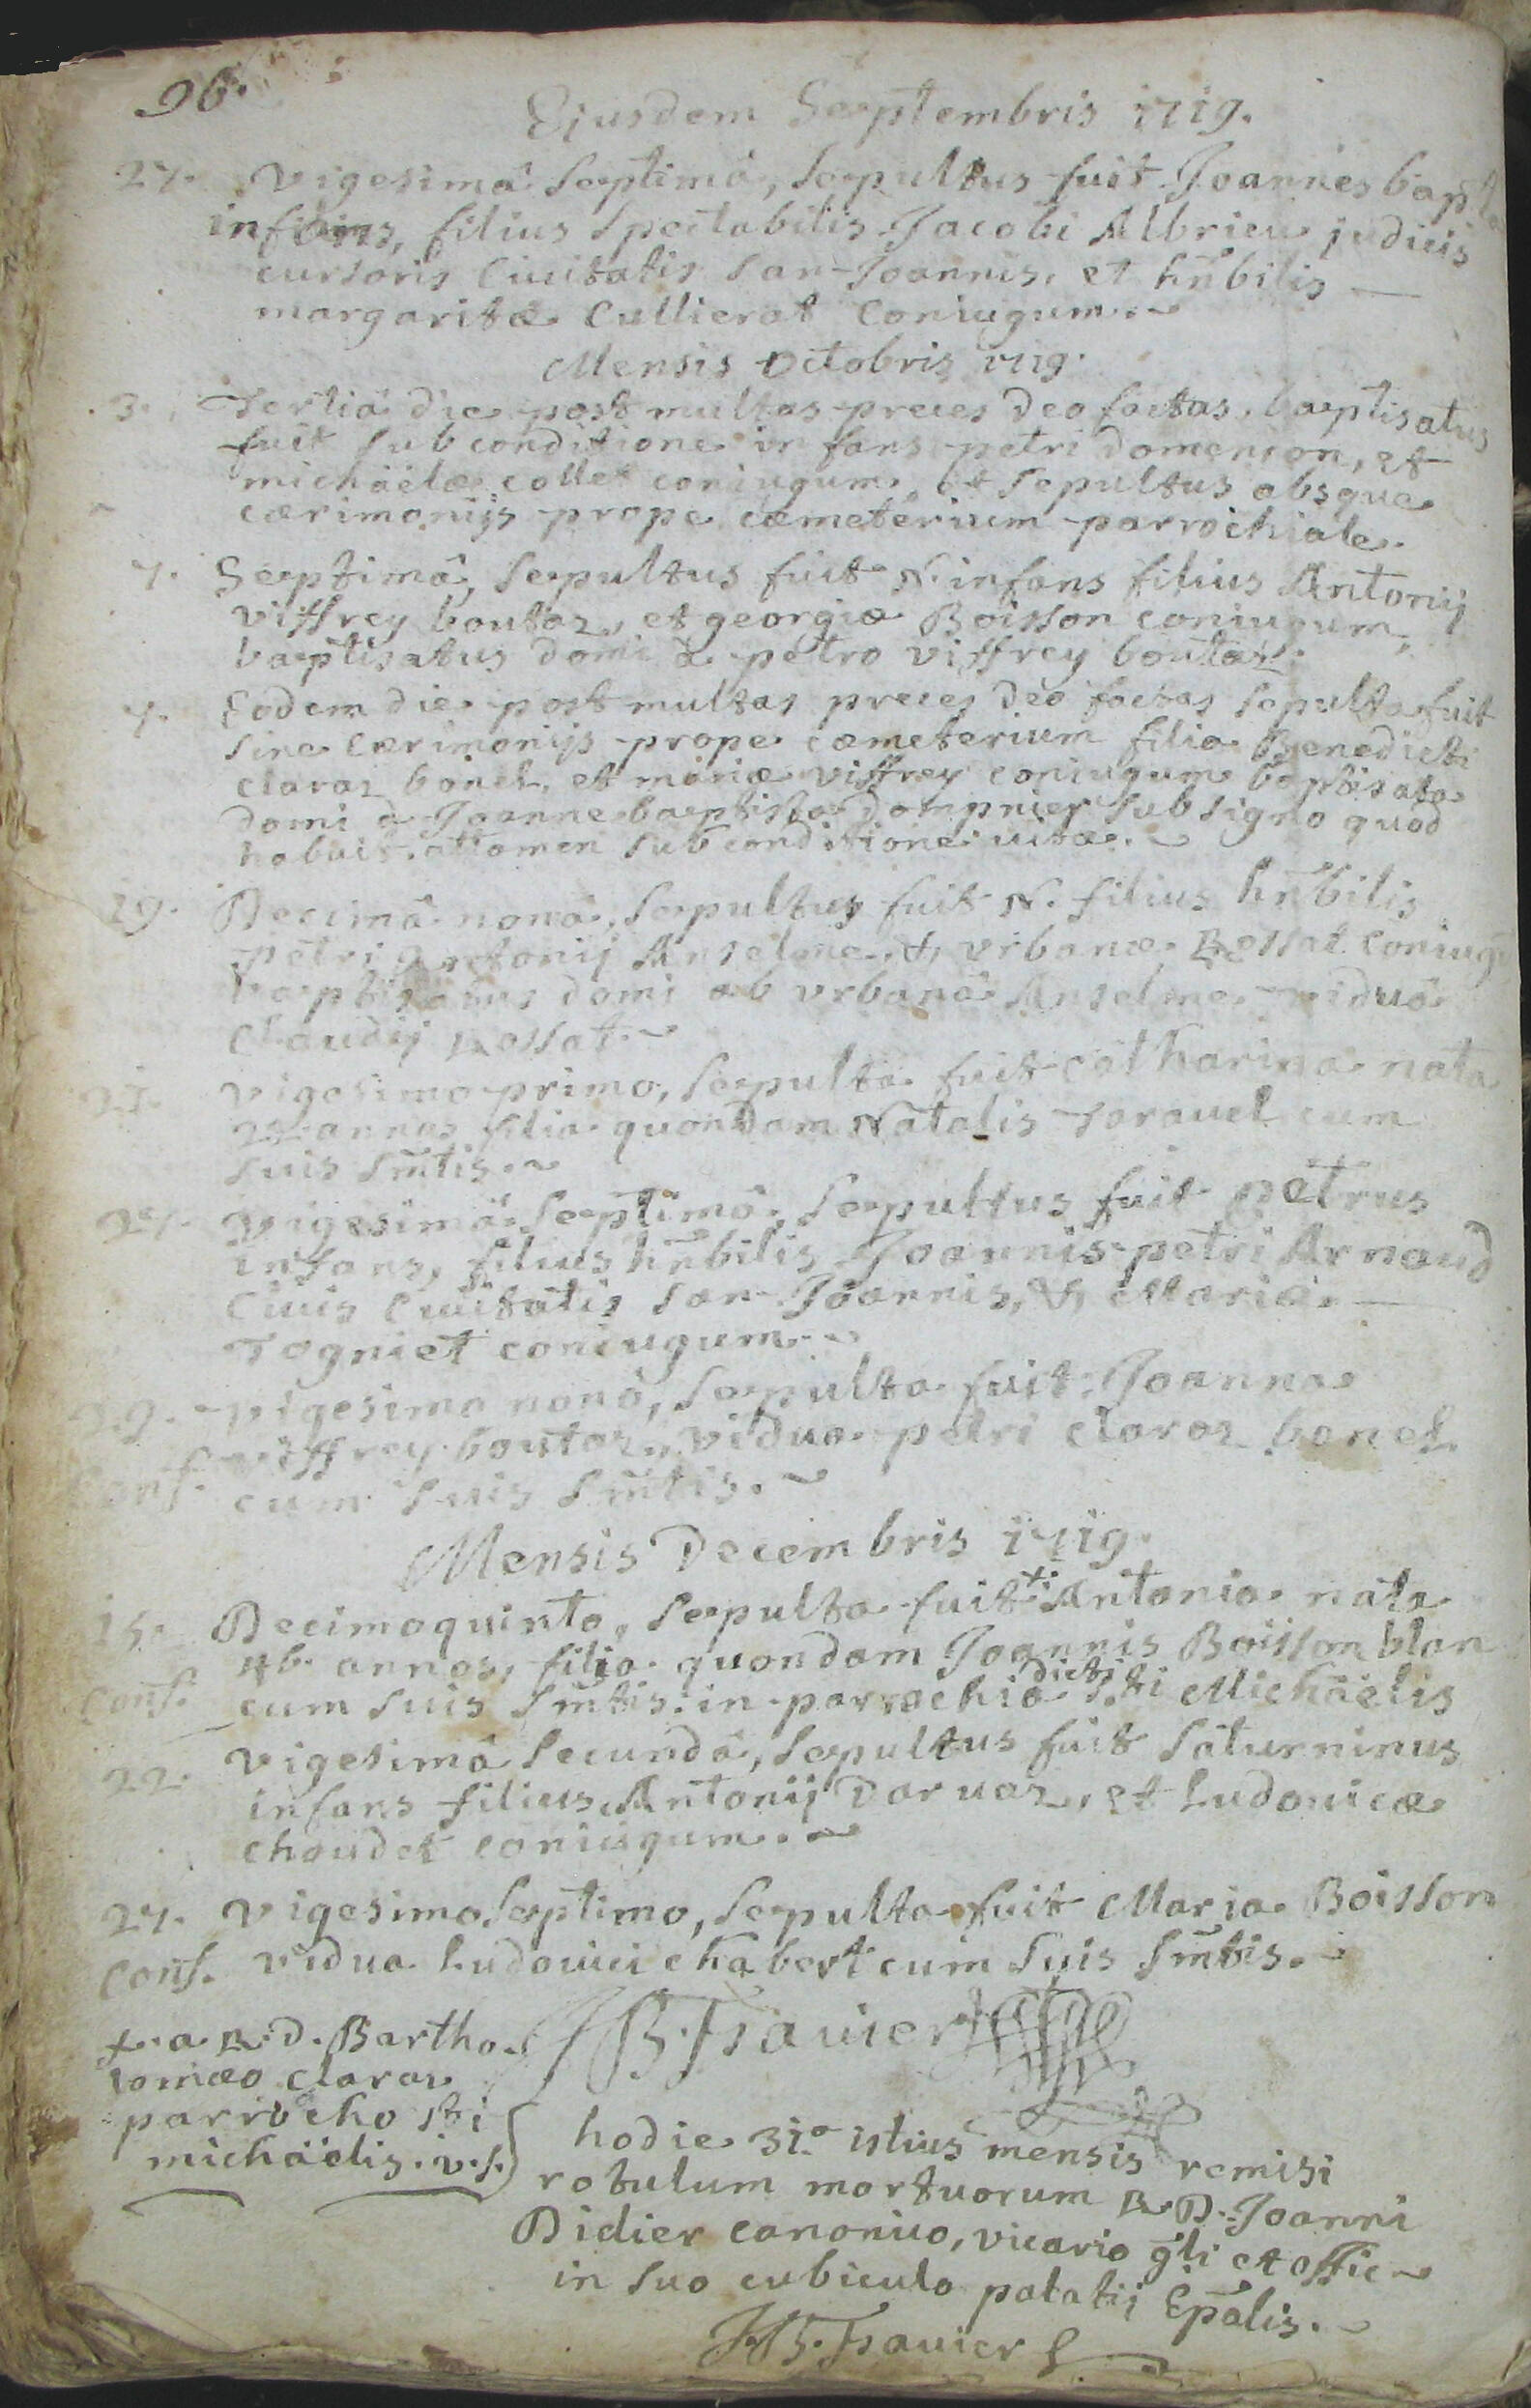 96.
Ejusdem Septembris 1719.
27. Vigesimâ Septimâ, Sepultus fuit Joannes bapta
infans, filius Spectabilis Jacobi Albrieu judicis
cursoris Ciuitatis San-Joannis, et hnbilis —
margaritæ Cullierat Coniugum.
Mensis octobris 1719.
3. Tertiâ die post multas preces deo factas, baptisatus
fuit Sub conditione infans petri domenion, et
michäelæ collet coniugum, et Sepultus absque
cærimonijs prope cæmeterium parrochiale.
7. Septimâ, Sepultus fuit N. infans filius Antonij
viffrey boutaz, et georgiæ Boisson coniugum,
baptisatus domi à petro viffrey boutaz.
7. Eodem die post multas preces deo factas Sepulta fuit
Sine Cærimonijs prope cæmeterium filia Benedicti
claraz bonel, et mariæ viffrey coniugum baptisata
domi à Joanne baptista dompnier Sub signo quod
habuit attamen Sub conditione vitæ.
19. Decimâ nonâ, Sepultus fuit N. filius hnbilis
petri antonij Anselme, & vrbanæ Rossat Coniug
baptisatus domi ab vrbanâ Anselme viduâ
Claudij Rossat.
21. Vigesimo primo, Sepulta fuit Catharina nata
annos filia quondam Natalis Tarauel cum
Suis Smtis.
27. Vigesimâ Septimâ, Sepultus fuit petrus
infans, filius hnbilis Joannis-petri Arnaud
Ciuis Ciuitatis San-Joannis, & Mariæ —
Togniet coniugum.
29. Vigesima nonâ, Sepulta fuit Joanna
viffrey boutaz, vidua petri claraz bonel
Conf. cum Suis Smtis.
Mensis Decembris 1719.
15. Decimoquinto, Sepulta fuit +. Antonia nata
46 annos, filia quondam Joannis Boisson blan
Conf. cum Suis Smtis. in parrochia dicti Sti Michäelis
22. Vigesimâ Secundâ, Sepultus fuit Saturninus
infans filius Antonij Daruaz, et Ludouicæ
chaudet coniugum.
27. Vigesimo Septimo, Sepulta fuit Maria Boisson
Conf. vidua Ludouici chabert cum Suis Smtis.
JB. Frauier
+. a R. d. Bartho-
lomæo Claraz
parrocho Sti
michäelis. v. s.
hodie 31a istius mensis remisi
rotulum mortuorum R. D. Joanni
Didier canonico, vicario gli et offic
in Suo cubiculo palatij Epalis.
JB. Frauier